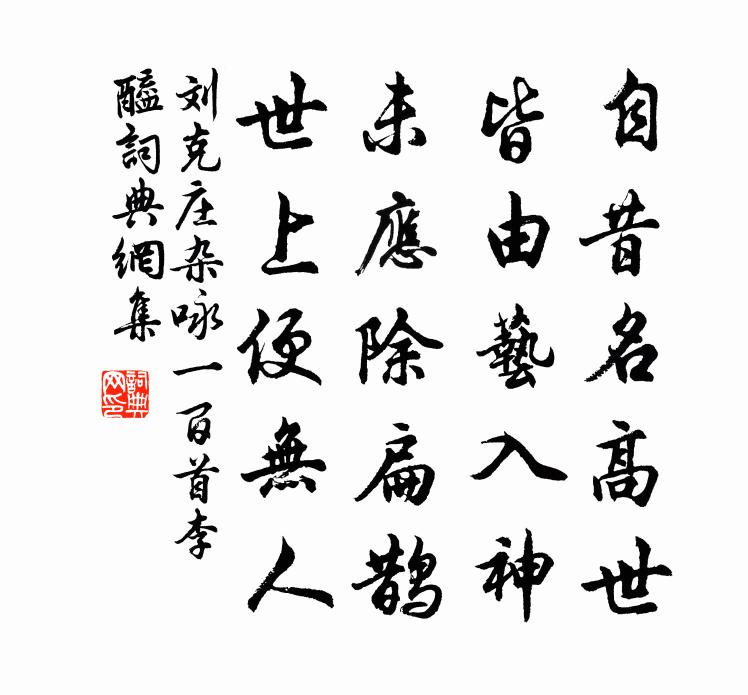 自昔名高世
皆由藝入神
未應除扁鵲
世上便無人
刘克庄杂咏一百首李
醯詞典網集
詞典
网印